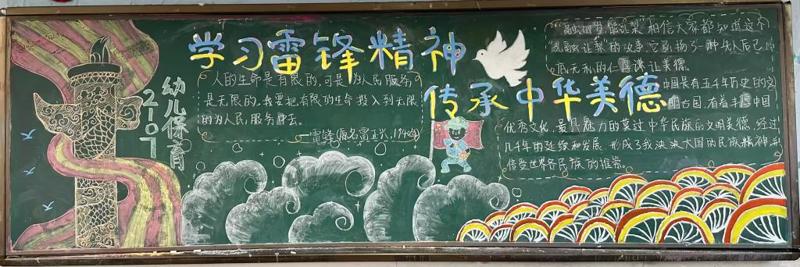 学习雷锋精神
传承中华美德
幼儿保育
2107
人的生命是有限的,可是为人民服务
是无限的,我要把有限的生命投入到无限
的为人民服务中去。
——雷锋(原名雷正兴,1940年
相信大家都知道这个
的故事,它
无私的仁 谦让美德。
中国是有五千年历史的文
古国,有着 中国
优秀文化,最具魅力的莫过中华民族的文明美德,经过
几千年的延续和发展,形成了我泱泱大国的民族精神,
倍受世界各民族的推崇。